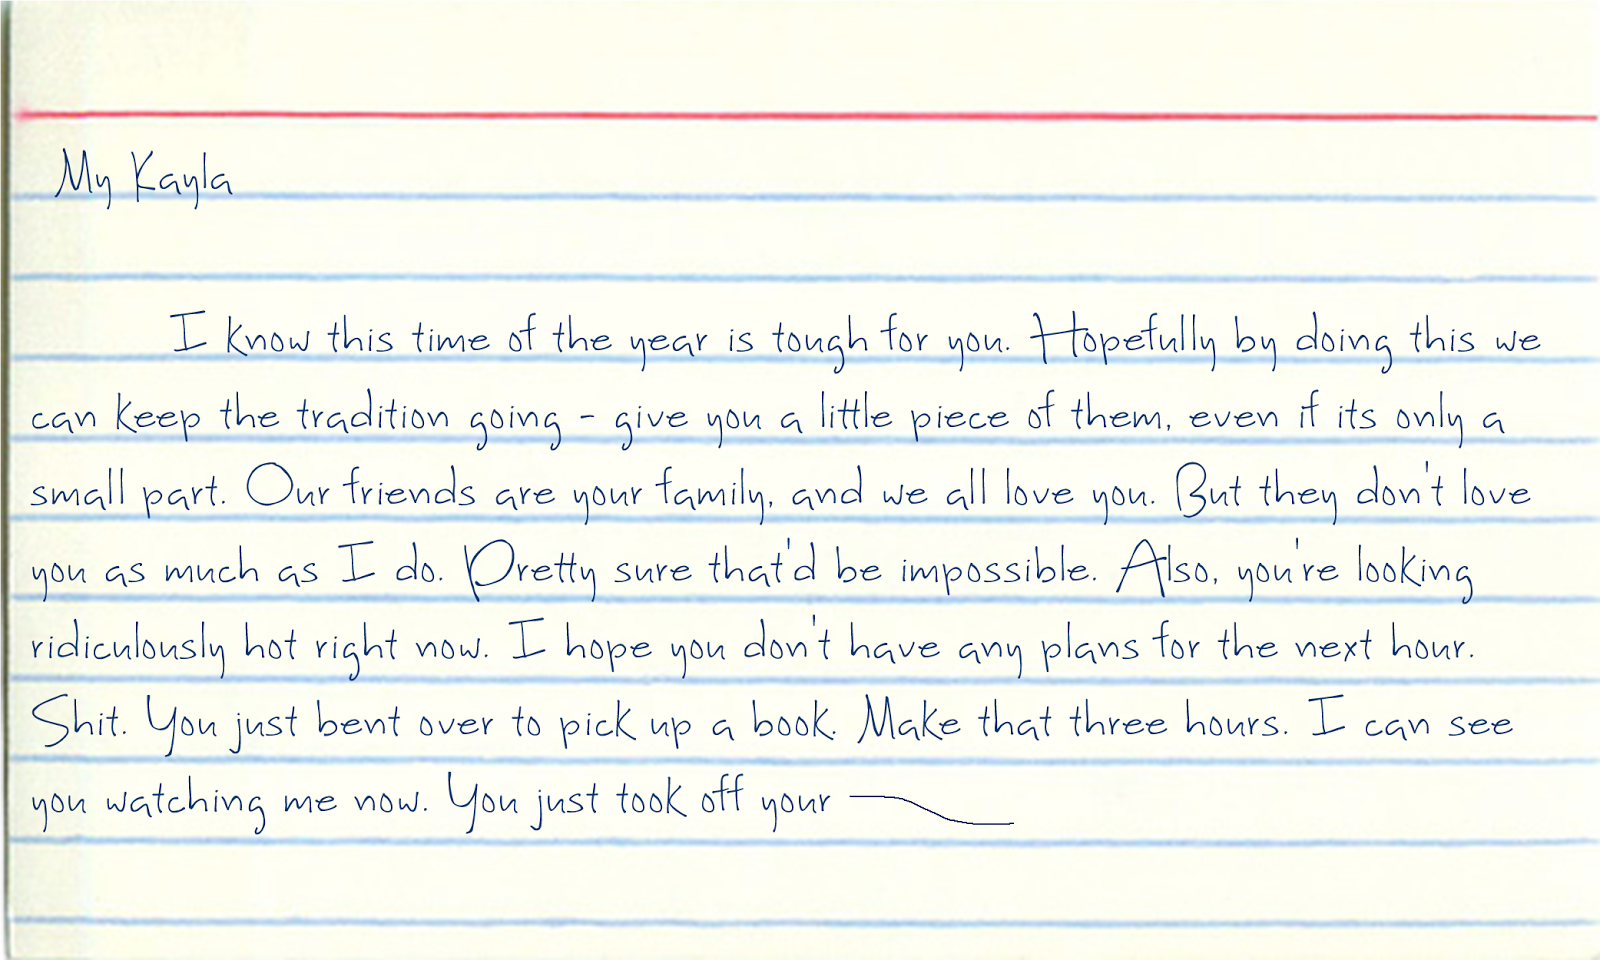 My Kayla
I know this time of the year is tough for you. Hopefully by doing this we
can keep the tradition going - give you a little piece of them, even if its only a
small part. Our friends are your family, and we all love you. But they don't love
you as much as I do. Pretty sure that'd be impossible. Also, you're looking
ridiculously hot right now. I hope you don't have any plans for the next hour.
Shit. You just bent over to pick up a book. Make that three hours. I can see
you watching me now. You just took off your